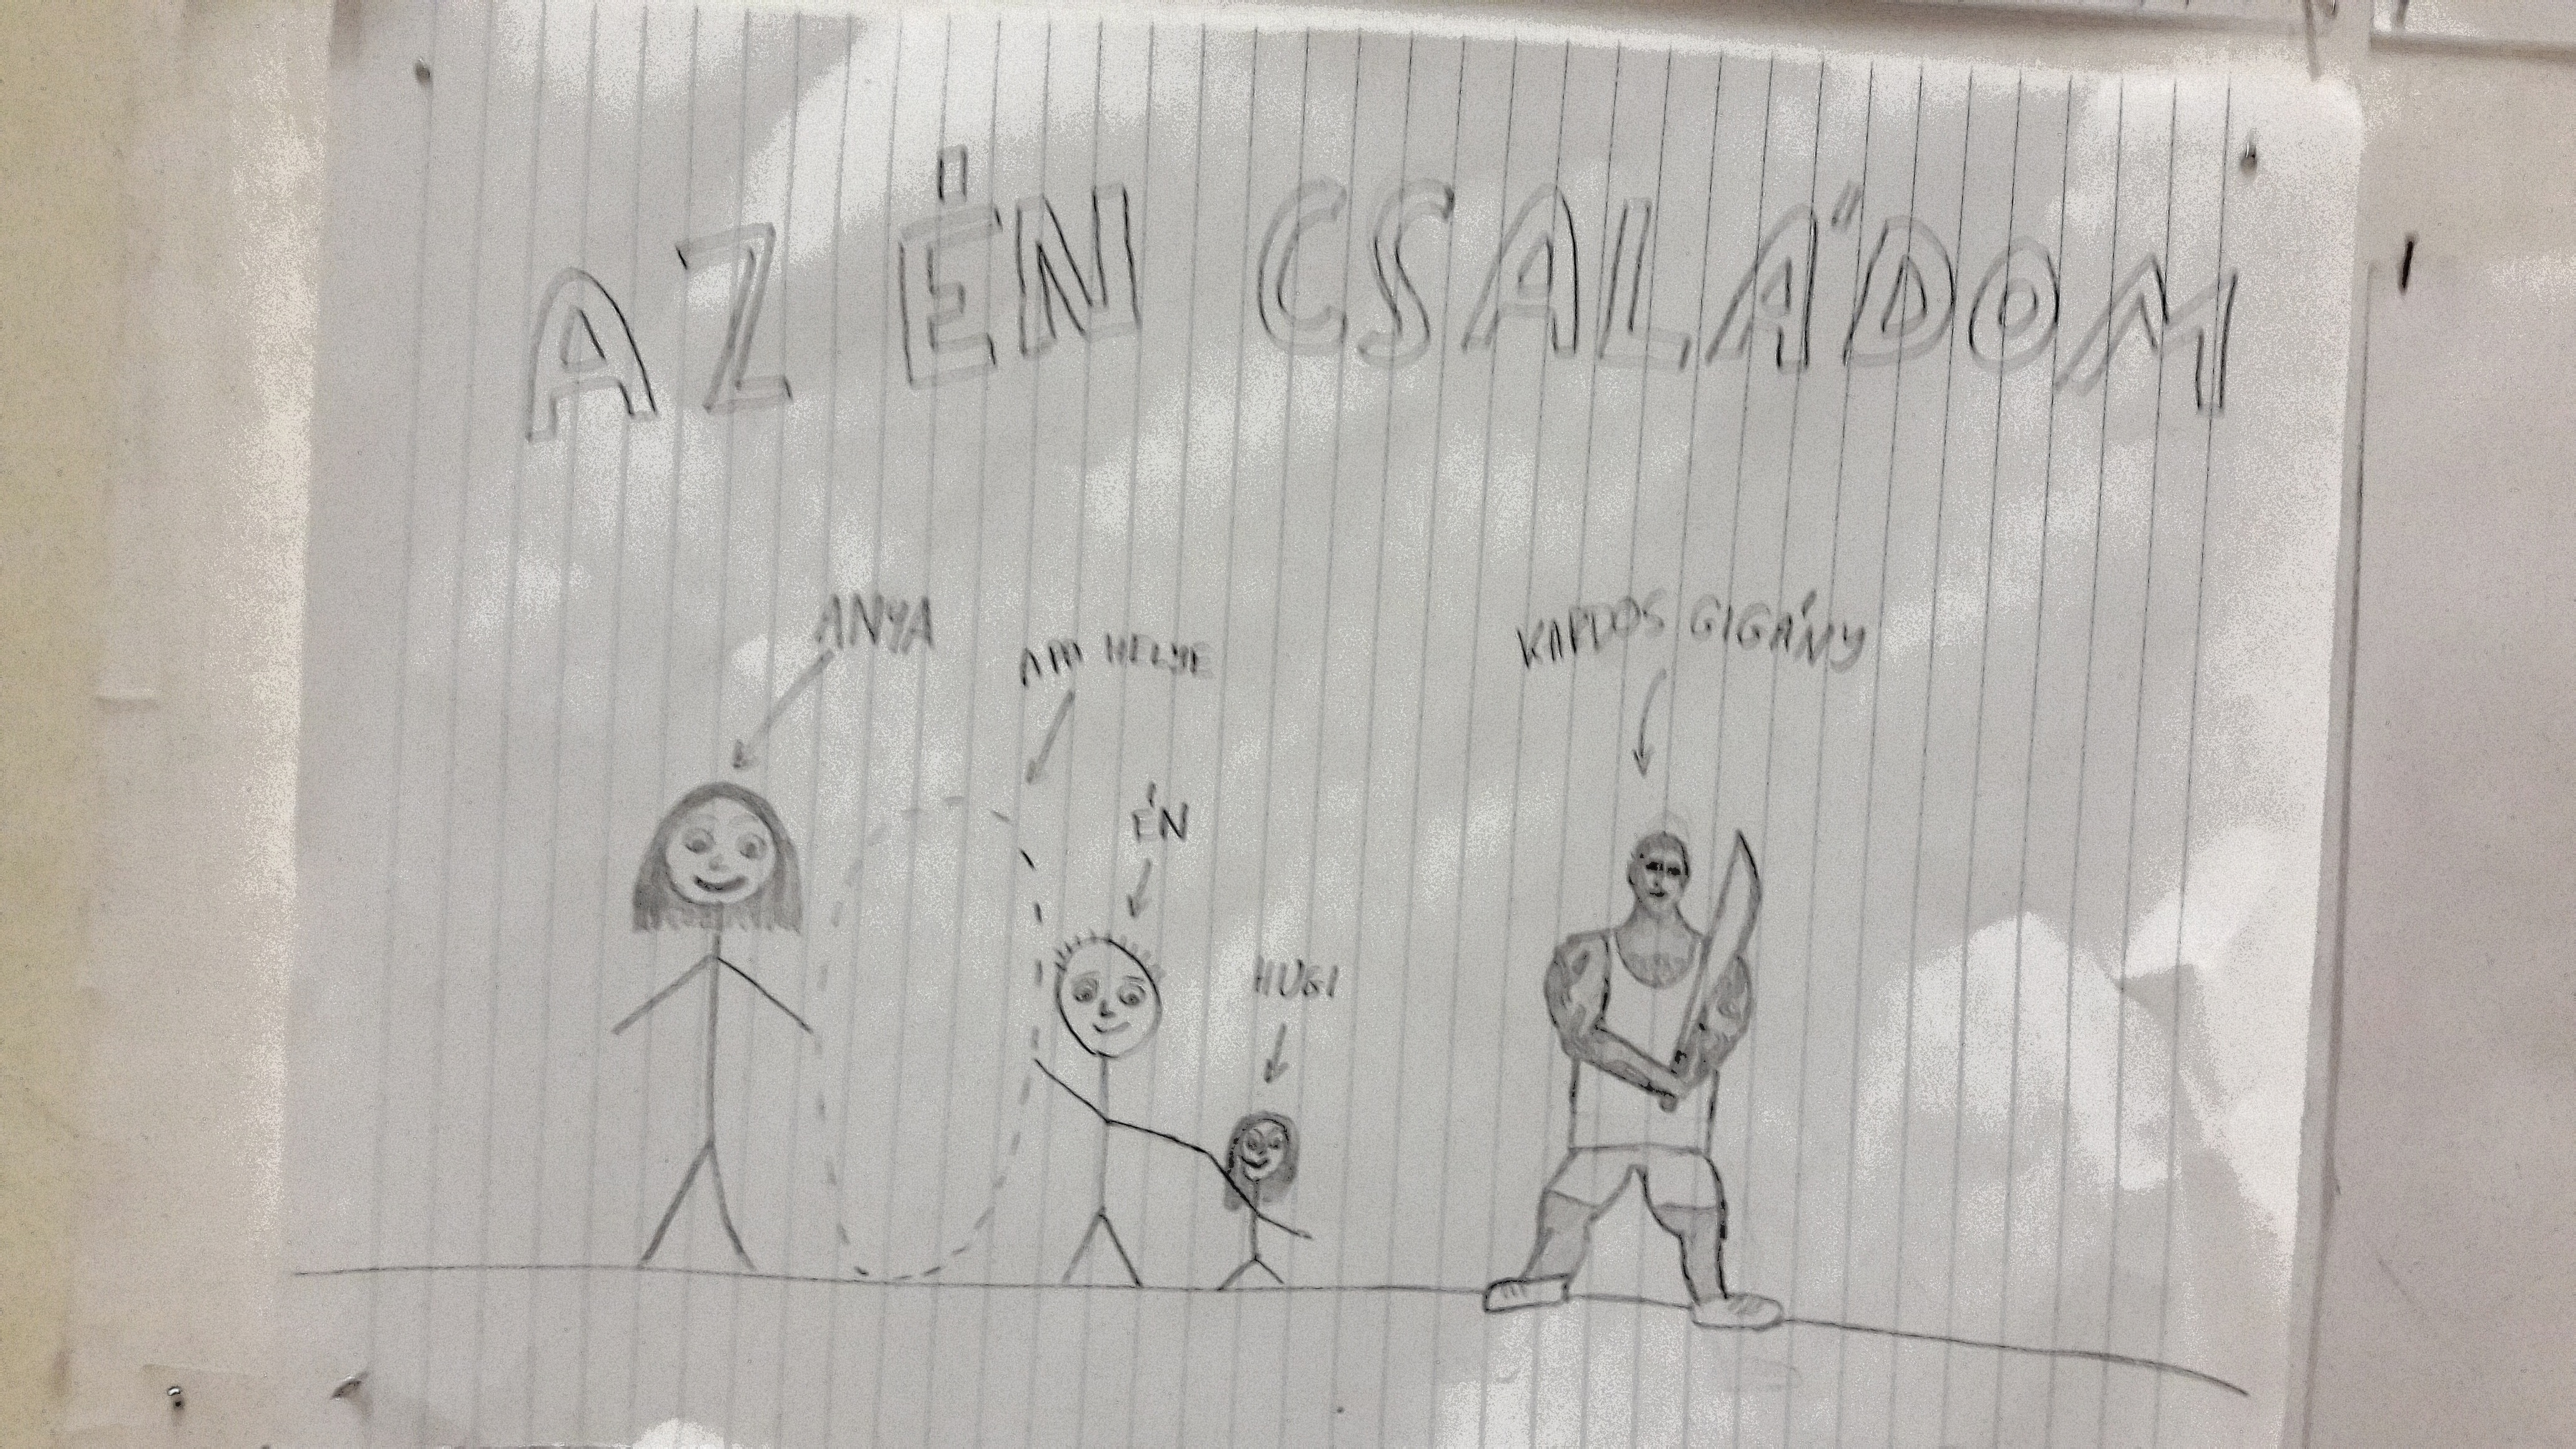 AZ ÉN CSALÁDOM
ANYA
APA HELYE
ÉN
HUGI
KARDOS GIGÁNY